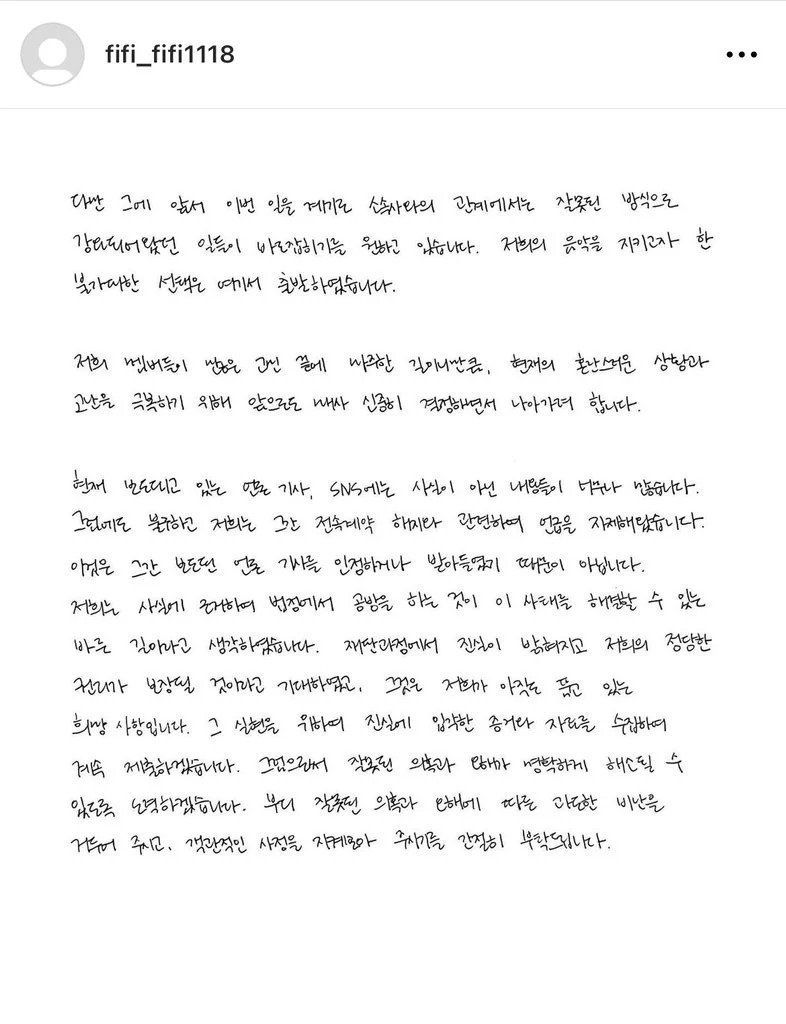 fifi_fifi1118
다만 그에 앞서 이번 일을 계기로 소속사와의 관계에서는 잘못된 방식으로
강요되어왔던 일들이 바로잡히기를 원하고 있습니다. 저희의 음악을 지키고자 한
불가피한 선택은 여기서 출발하였습니다.
저희 멤버들이 많은 고민 끝에 마주한 길이니만큼, 현재의 혼란스러운 상황과
고난을 극복하기 위해 앞으로도 매사 신중히 결정하면서 나아가려 합니다.
현재 보도되고 있는 언론 기사, SNS에는 사실이 아닌 내용들이 너무나 많습니다.
그럼에도 불구하고 저희는 그간 전속계약 해지와 관련하여 언급을 자제해왔습니다.
이것은 그간 보도된 언론 기사를 인정하거나 받아들였기 때문이 아닙니다.
저희는 사실에 근거하여 법정에서 공방을 하는 것이 이 사태를 해결할 수 있는
바른 길이라고 생각하였습니다. 재판과정에서 진실이 밝혀지고 저희의 정당한
권리가 보장될 것이라고 기대하였고, 그것은 저희가 아직도 품고 있는
희망 사항입니다. 그 실현을 위하여 진실에 입각한 증거와 자료를 수집하여
계속 제출하겠습니다. 그럼으로써 잘못된 의혹과 오해가 명확하게 해소될 수
있도록 노력하겠습니다. 부디 잘못된 의혹과 오해에 따른 과도한 비난을
거두어 주시고, 객관적인 사정을 지켜보아 주시기를 간절히 부탁드립니다.